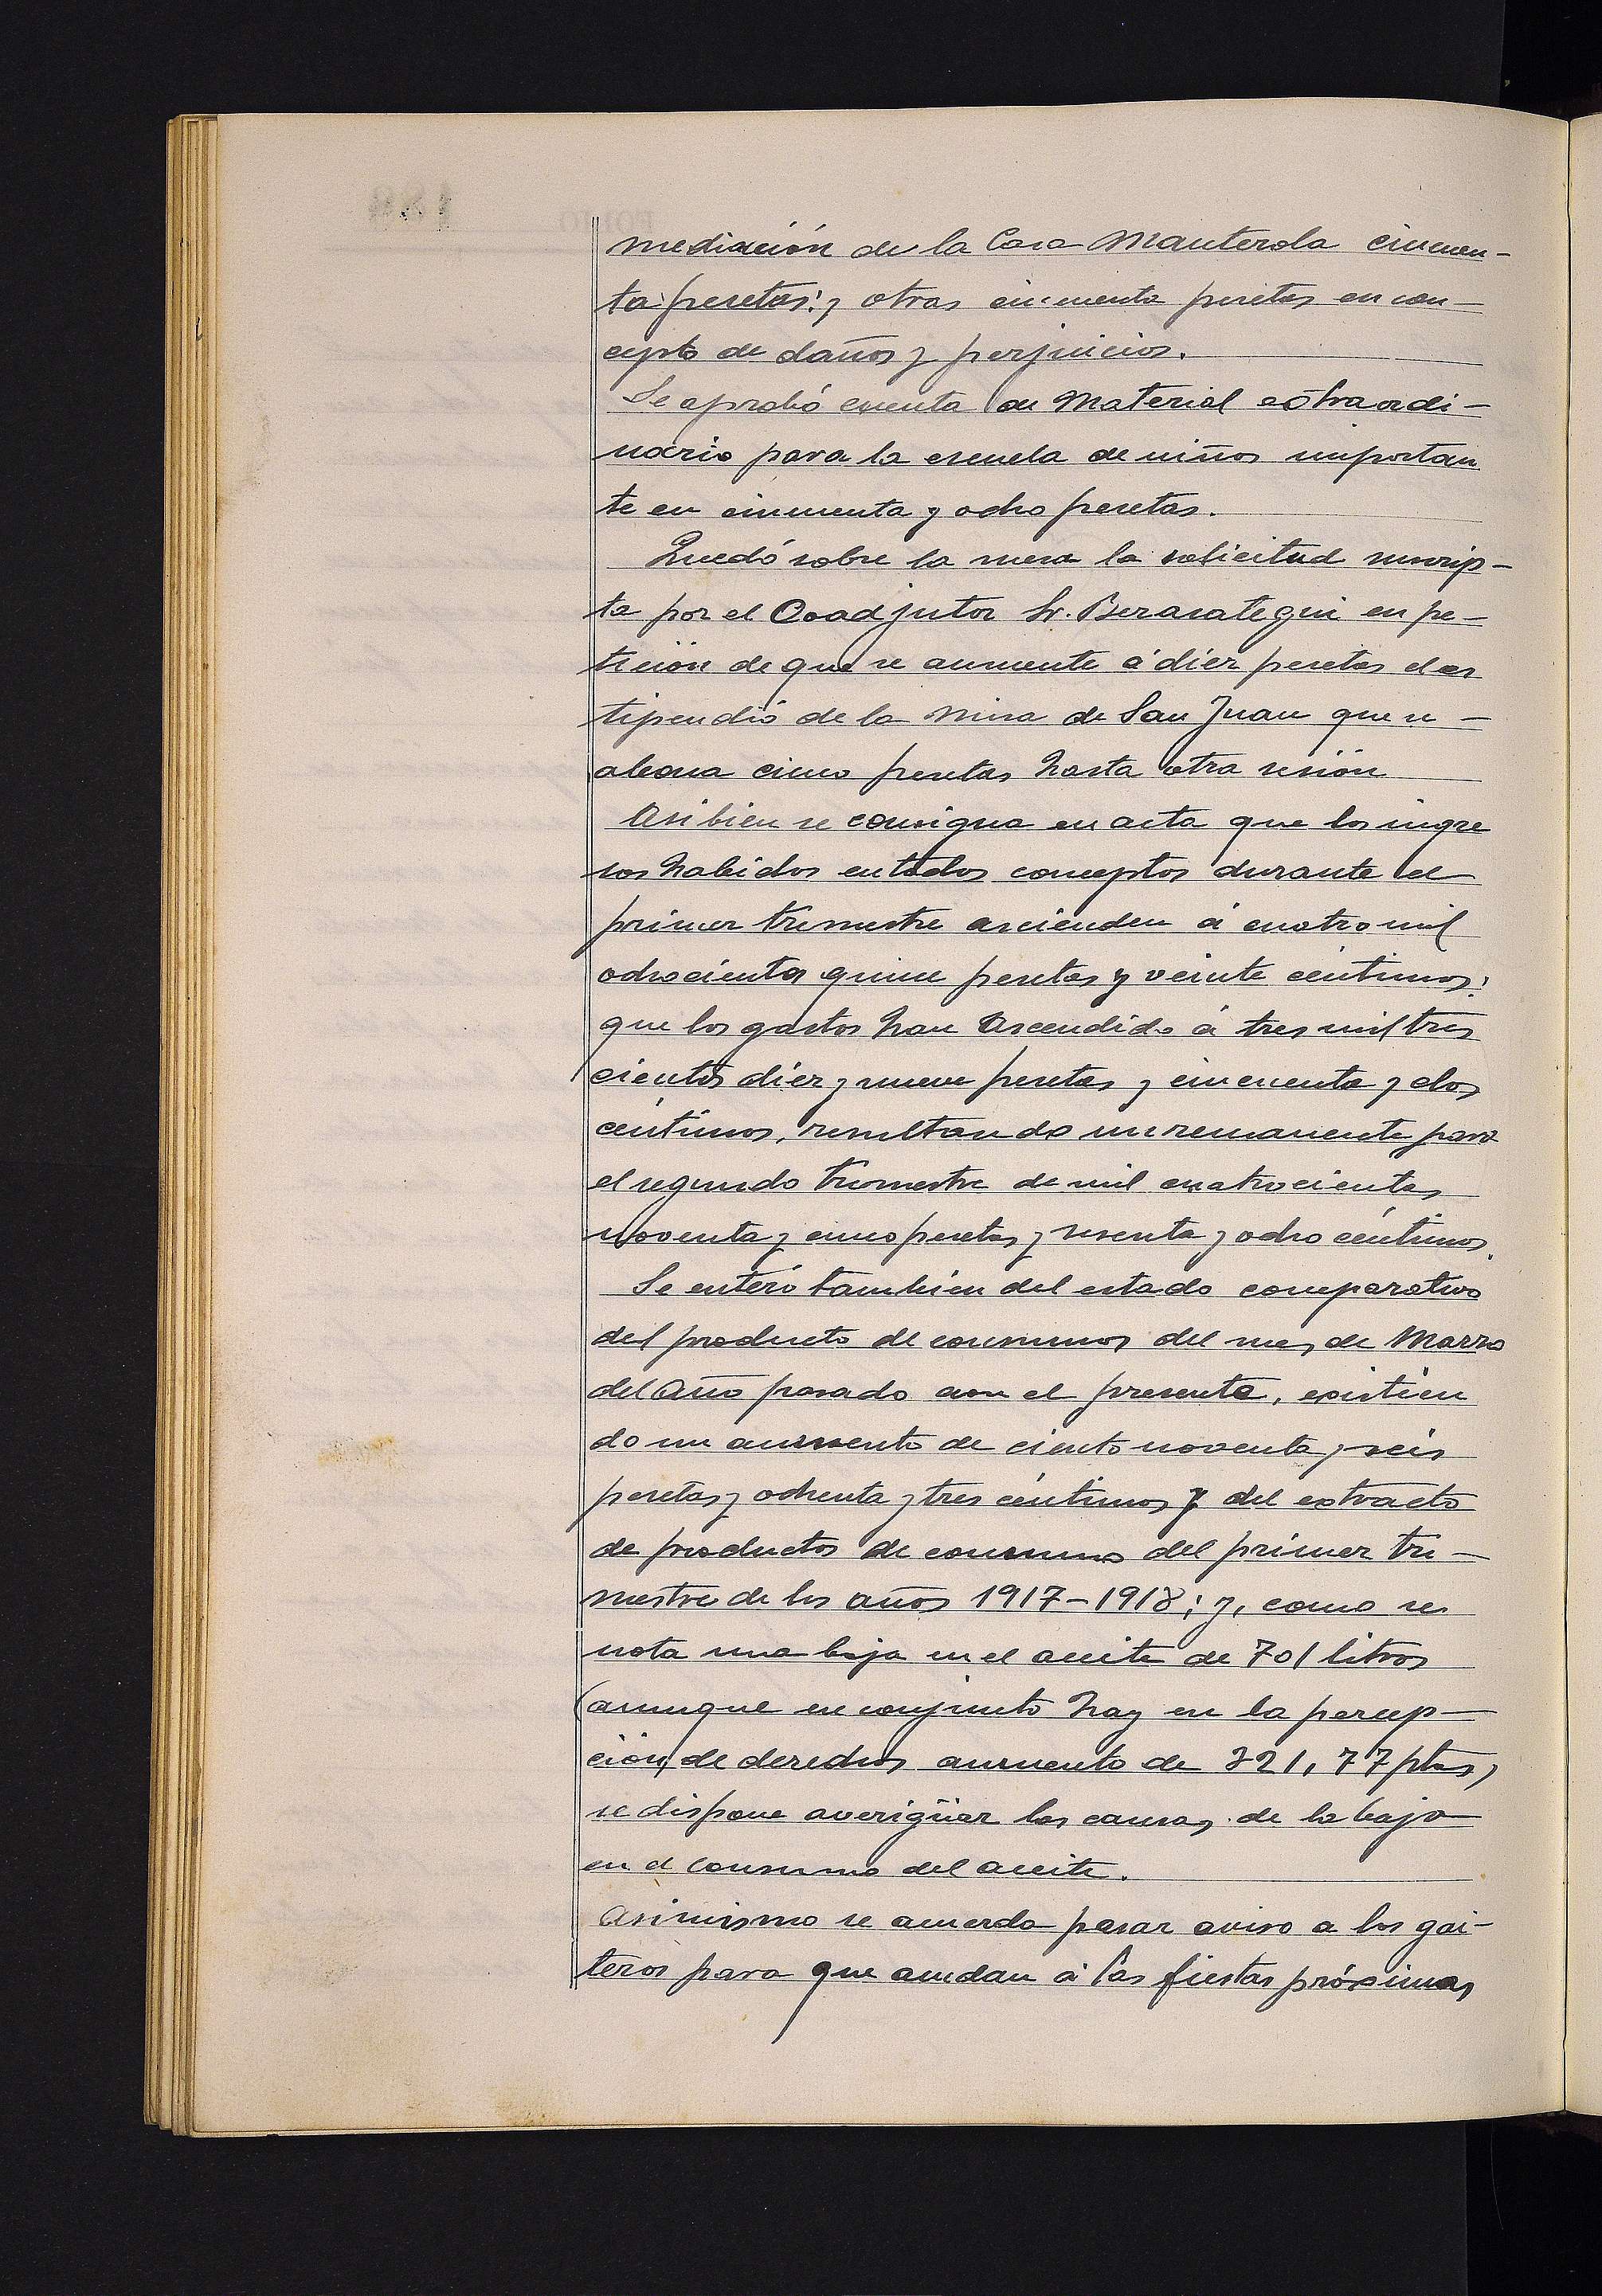 mediación de la Casa Manterola cincuen-
ta pesetas; y otras cincuenta pesetas en con-
cepto de daños y perjuicios.
Se aprobó cuenta de Material extraordi-
nario para la escuela de niños importan
te en cincuenta y ocho pesetas.
Quedó sobre la mesa la solicitud suscrip-
ta por el Coadjutor Sr. Berasategui en pe-
tición de que se aumente á diez pesetas el es
tipendió de la misa de San Juan que se -
abona cinco pesetas hasta otra sesión
Asibien se consigna en acta que los ingre
sos habidos en todos conceptos durante el
primer trimestre ascienden á cuatro mil
ochocientas quince pesetas y veinte céntimos;
que los gastos han Ascendido á tres mil tres
cientos diez y nueve pesetas y cincuenta y dos
céntimos, resultando un remanente para
el segundo trimestre de mil cuatrocientas
noventa y cinco pesetas y sesenta y ocho céntimos.
Se enteró tambien del estado comparativo
del producto de consumos del mes de Marzo
del Año pasado con el presente, existien
do un aumento de ciento noventa y seis
pesetas y ochenta y tres céntimos y del extracto
de productos de consumos del primer tri-
mestre de los años 1917-1918; y, como se
nota una baja en el aceite de 701 litros
(aunque en conjunto hay en la percep-
ción, de derechos aumento de 321,77 ptas,
se dispone averigüar las causas de la baja
en el consumo del aceite.
Asimismo se acuerda pasar aviso a los gai-
teros para que acudan á las fiestas próximas
FOLIO